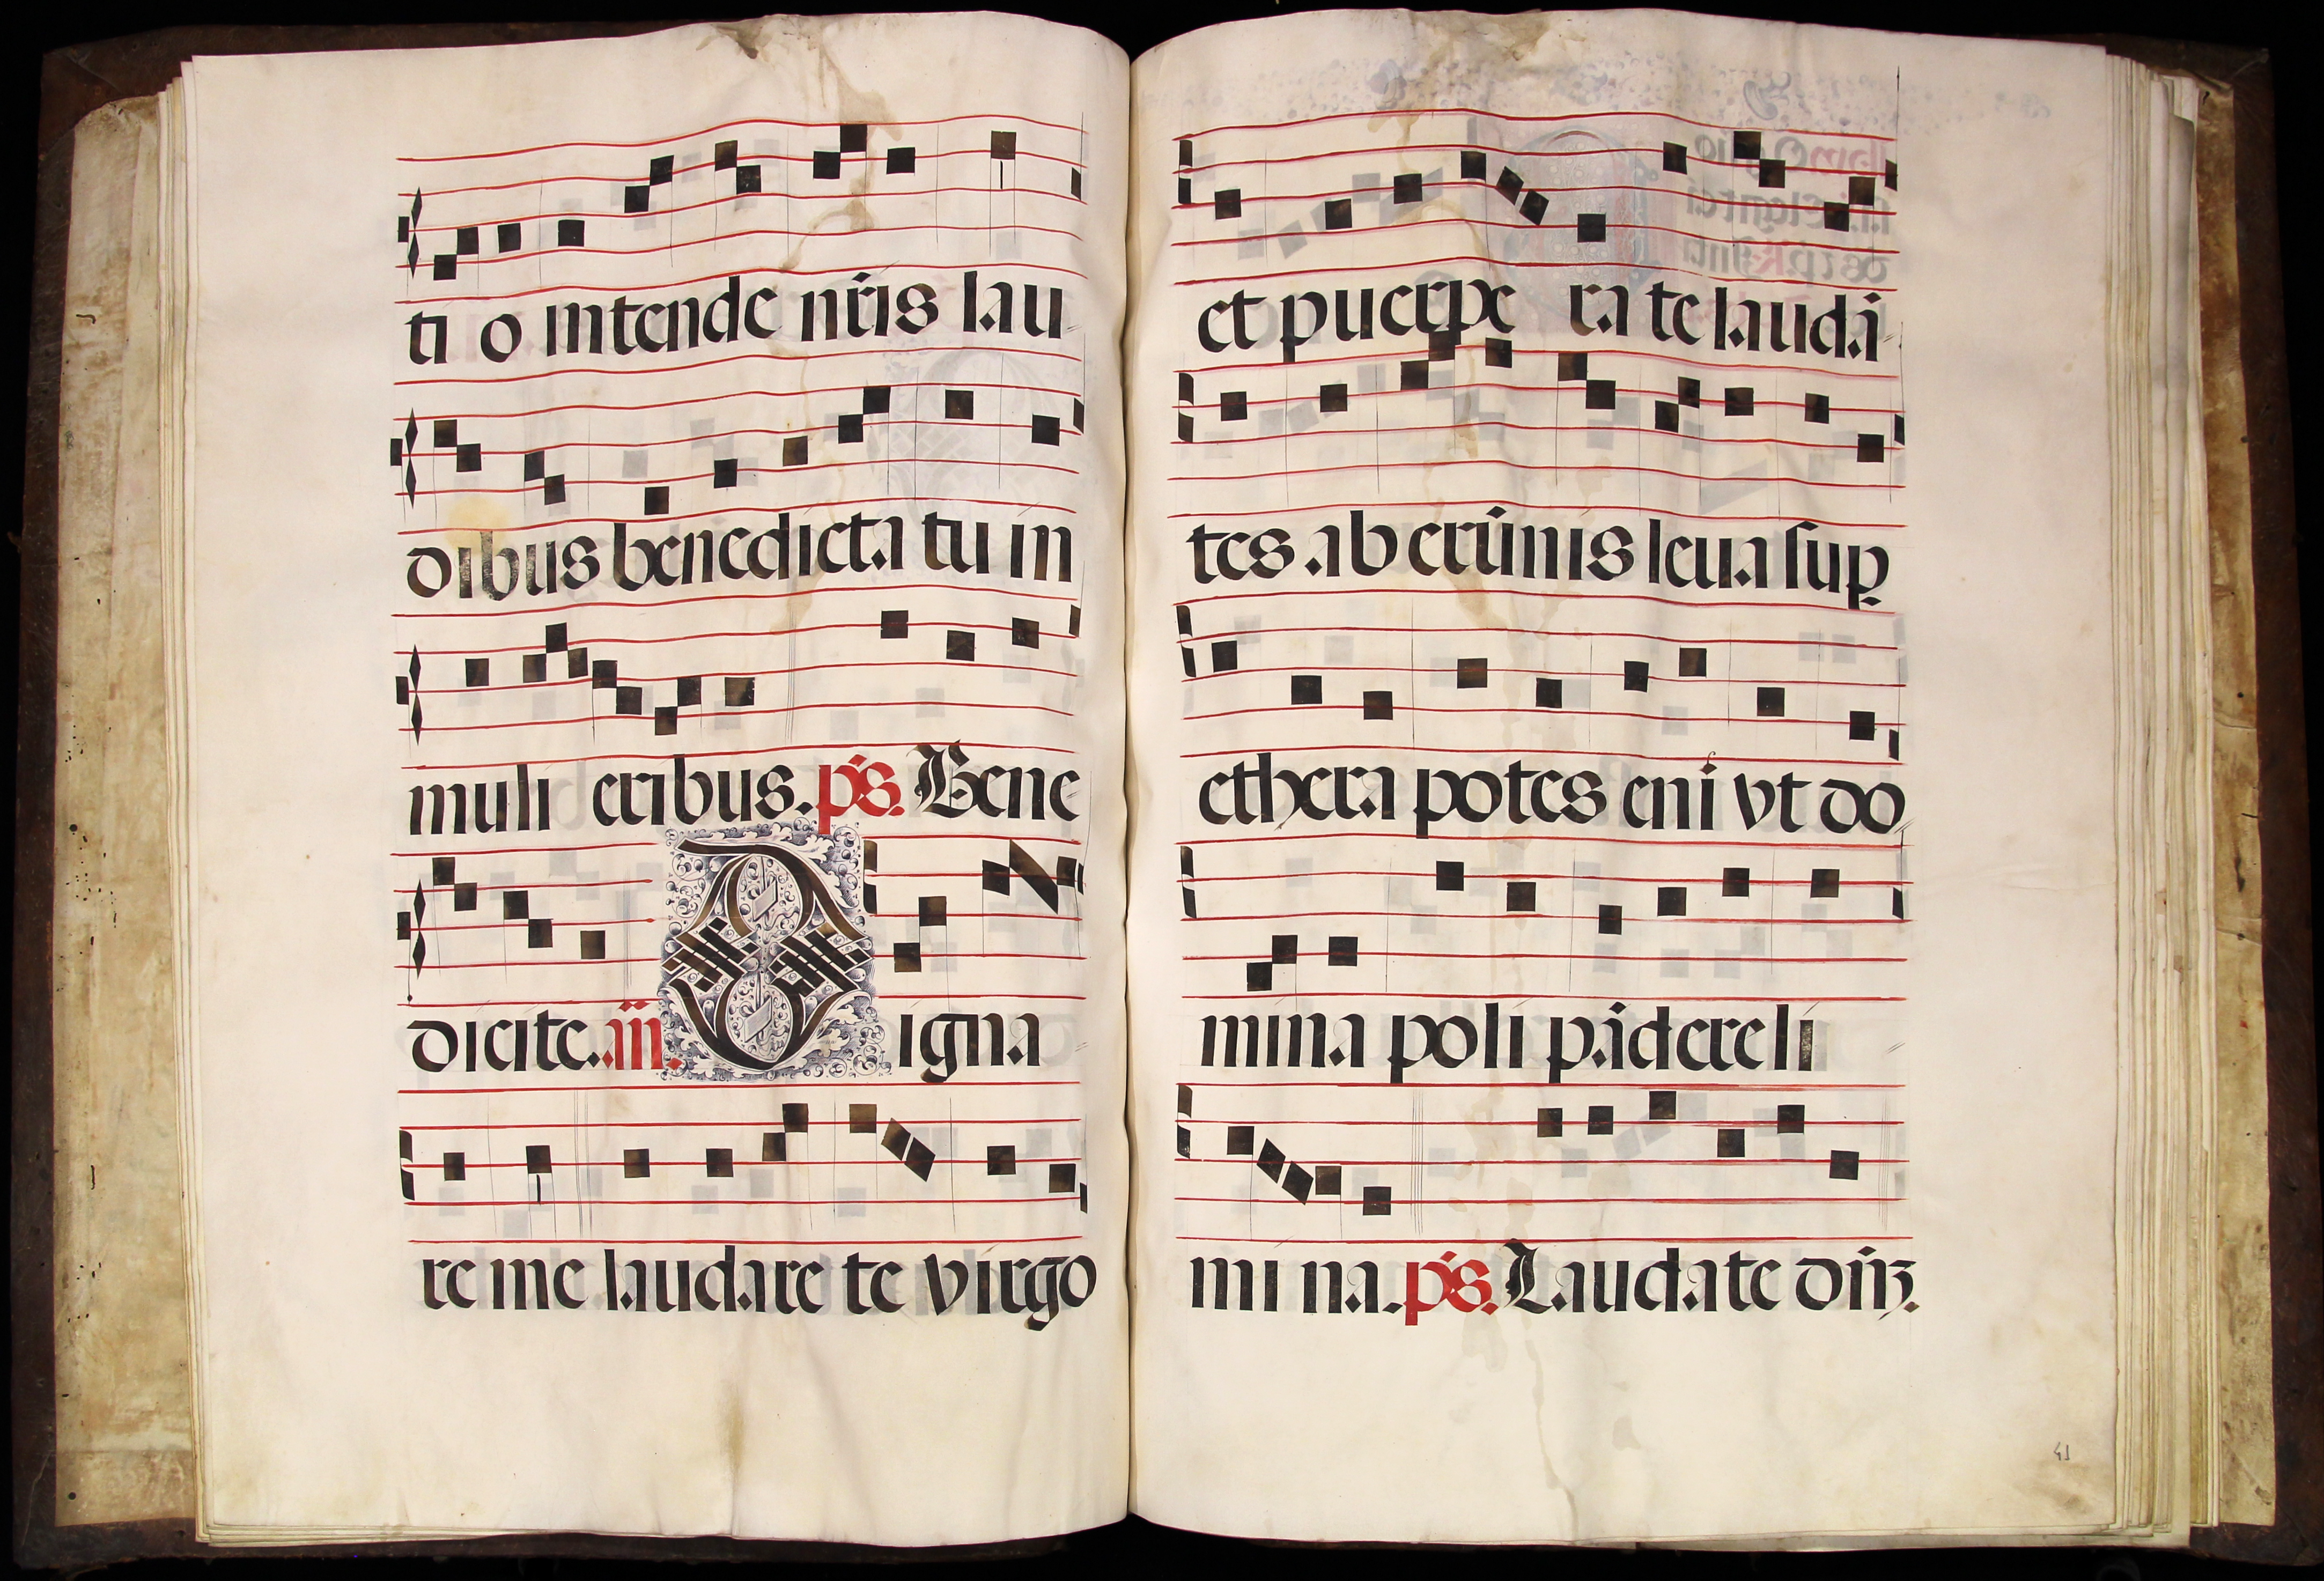 ti o intende nr̃is lau
dibus benedicta tu in
muli eribus. ps. Bene
dicite. añ. Digna
re me laudare te virgo
et puerpe ra te laudã
tes ab erũnis leua sup
ethera potes eni vt do
mina poli pãdere li
mi na. ps. Laudate dñz.
41